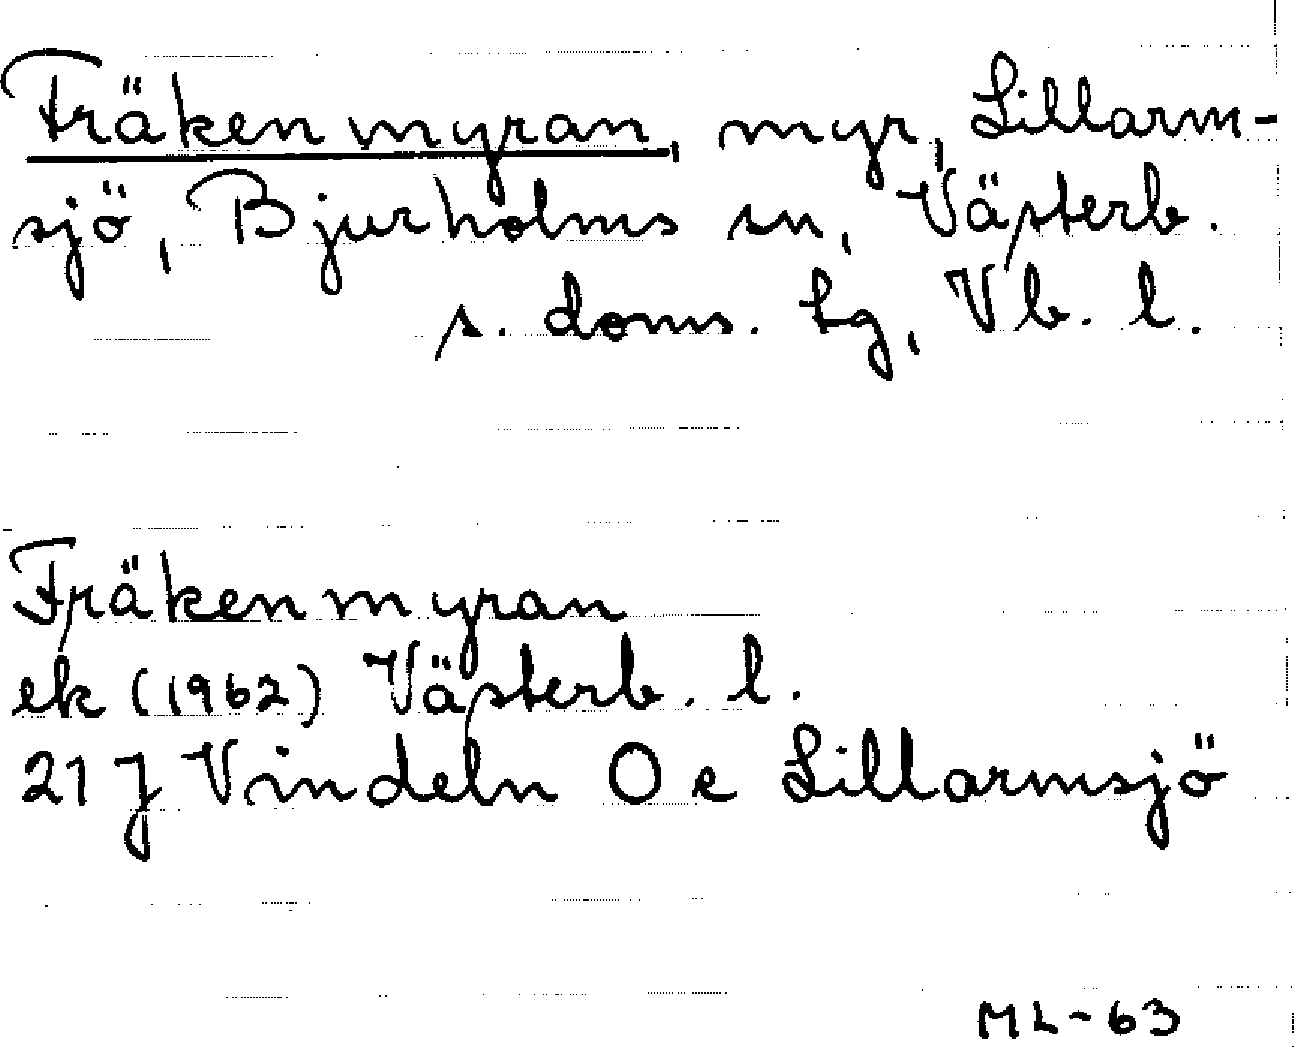 Fräkenmyran, myr, Lillarm-
sjö, Bjurholms sn, Västerb.
s. doms. lg, Vb. l.
Fräkenmyran
ek (1962) Västerb. l.
21 J Vindeln O e Lillarmsjö
ML-63